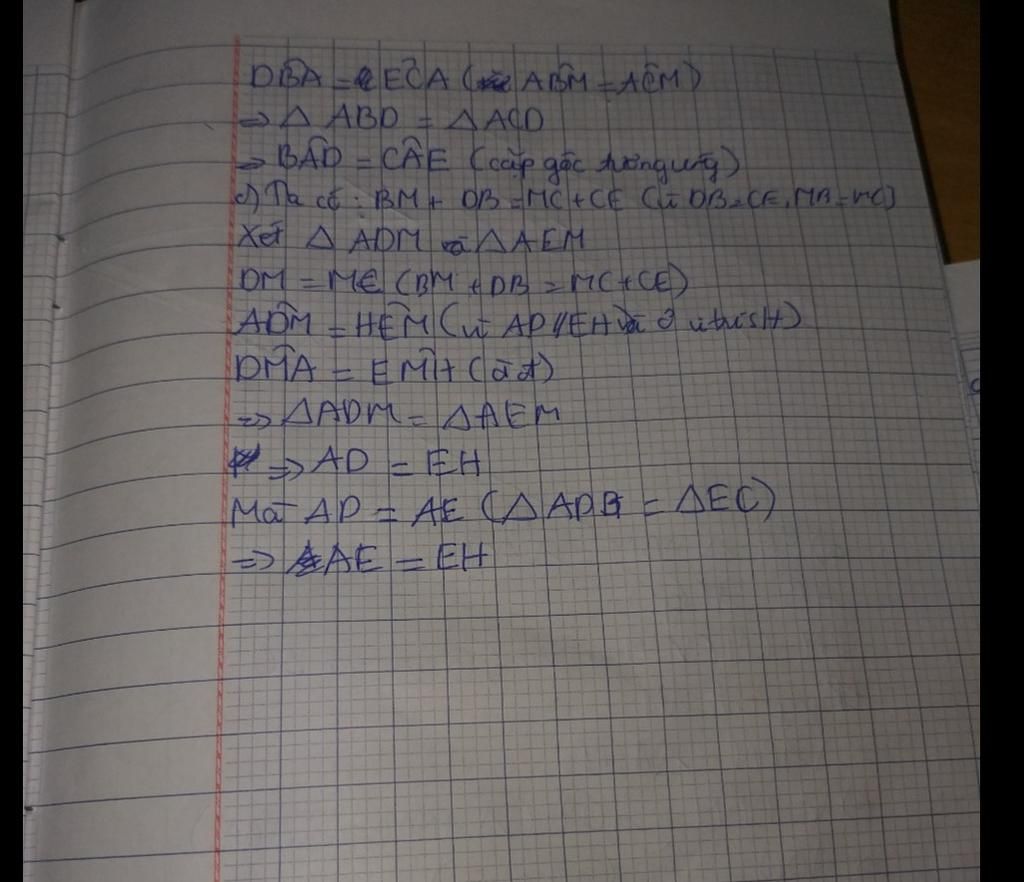 DB̂A = EĈA (AB̂M = AĈM)
=> △ ABD = △ ACD
=> BÂD = CÂE (cặp góc tương ứng)
c) Ta có : BM + DB = MC + CE (vì DB = CE, MB = MC)
Xét △ ADM và △ AEM
DM = ME (BM + DB = MC + CE)
AD̂M = HÊM (vì AD // EH và ở vị trí slt)
DM̂A = EM̂H (đđ)
=> △ADM = △AEM
=> AD = EH
Mà AD = AE (△ ADB = △EC)
=> AE = EH